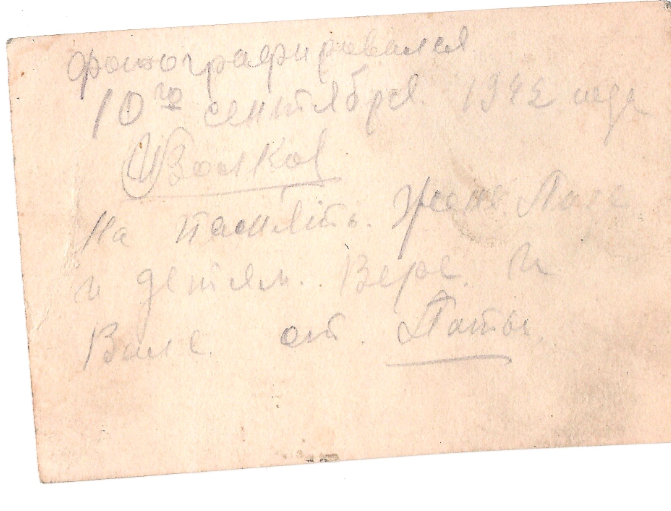 Фотографировался
10го сентября 1942 года
Волков
На память. Жене Поле
и детям. Вере. и
Вале. от. Папы